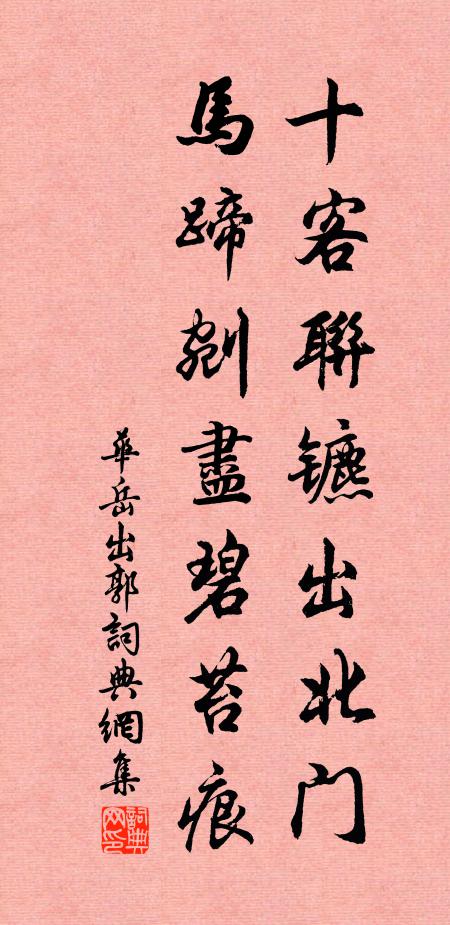 十客聯镳出北門
馬蹄剜盡碧苔痕
華岳出郭詞典網集
詞典網印